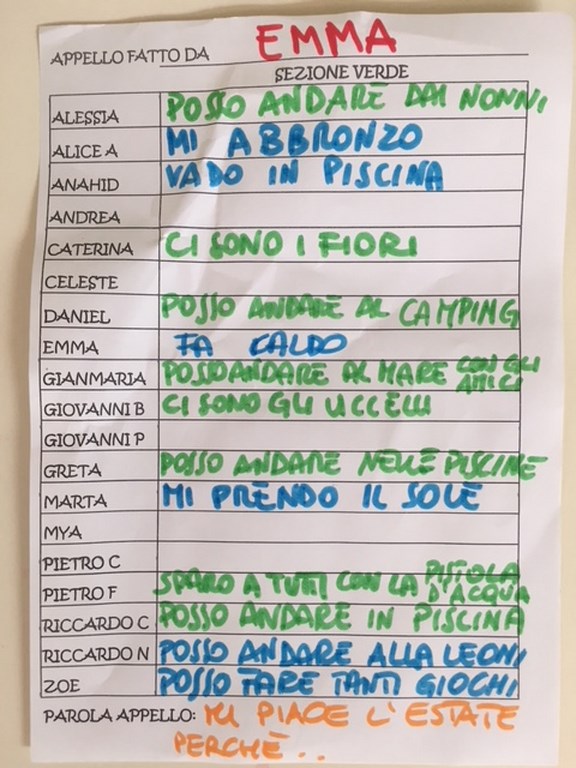 APPELLO FATTO DA EMMA
SEZIONE VERDE
ALESSIA POSSO ANDARE DAI NONNI
ALICE A MI ABBRONZO
ANAHID VADO IN PISCINA
ANDREA
CATERINA CI SONO I FIORI
CELESTE
DANIEL POSSO ANDARE AL CAMPING
EMMA FA CALDO
GIANMARIA POSSO ANDARE AL MARE CON GLI AMICI
GIOVANNI B CI SONO GLI UCCELLI
GIOVANNI P
GRETA POSSO ANDARE NELLE PISCINE
MARTA MI PRENDO IL SOLE
MYA
PIETRO C
PIETRO F SPARO A TUTTI CON LA PISTOLA D'ACQUA
RICCARDO C POSSO ANDARE IN PISCINA
RICCARDO N POSSO ANDARE ALLA LEONI
ZOE POSSO FARE TANTI GIOCHI
PAROLA APPELLO: MI PIACE L'ESTATE
PERCHÈ..